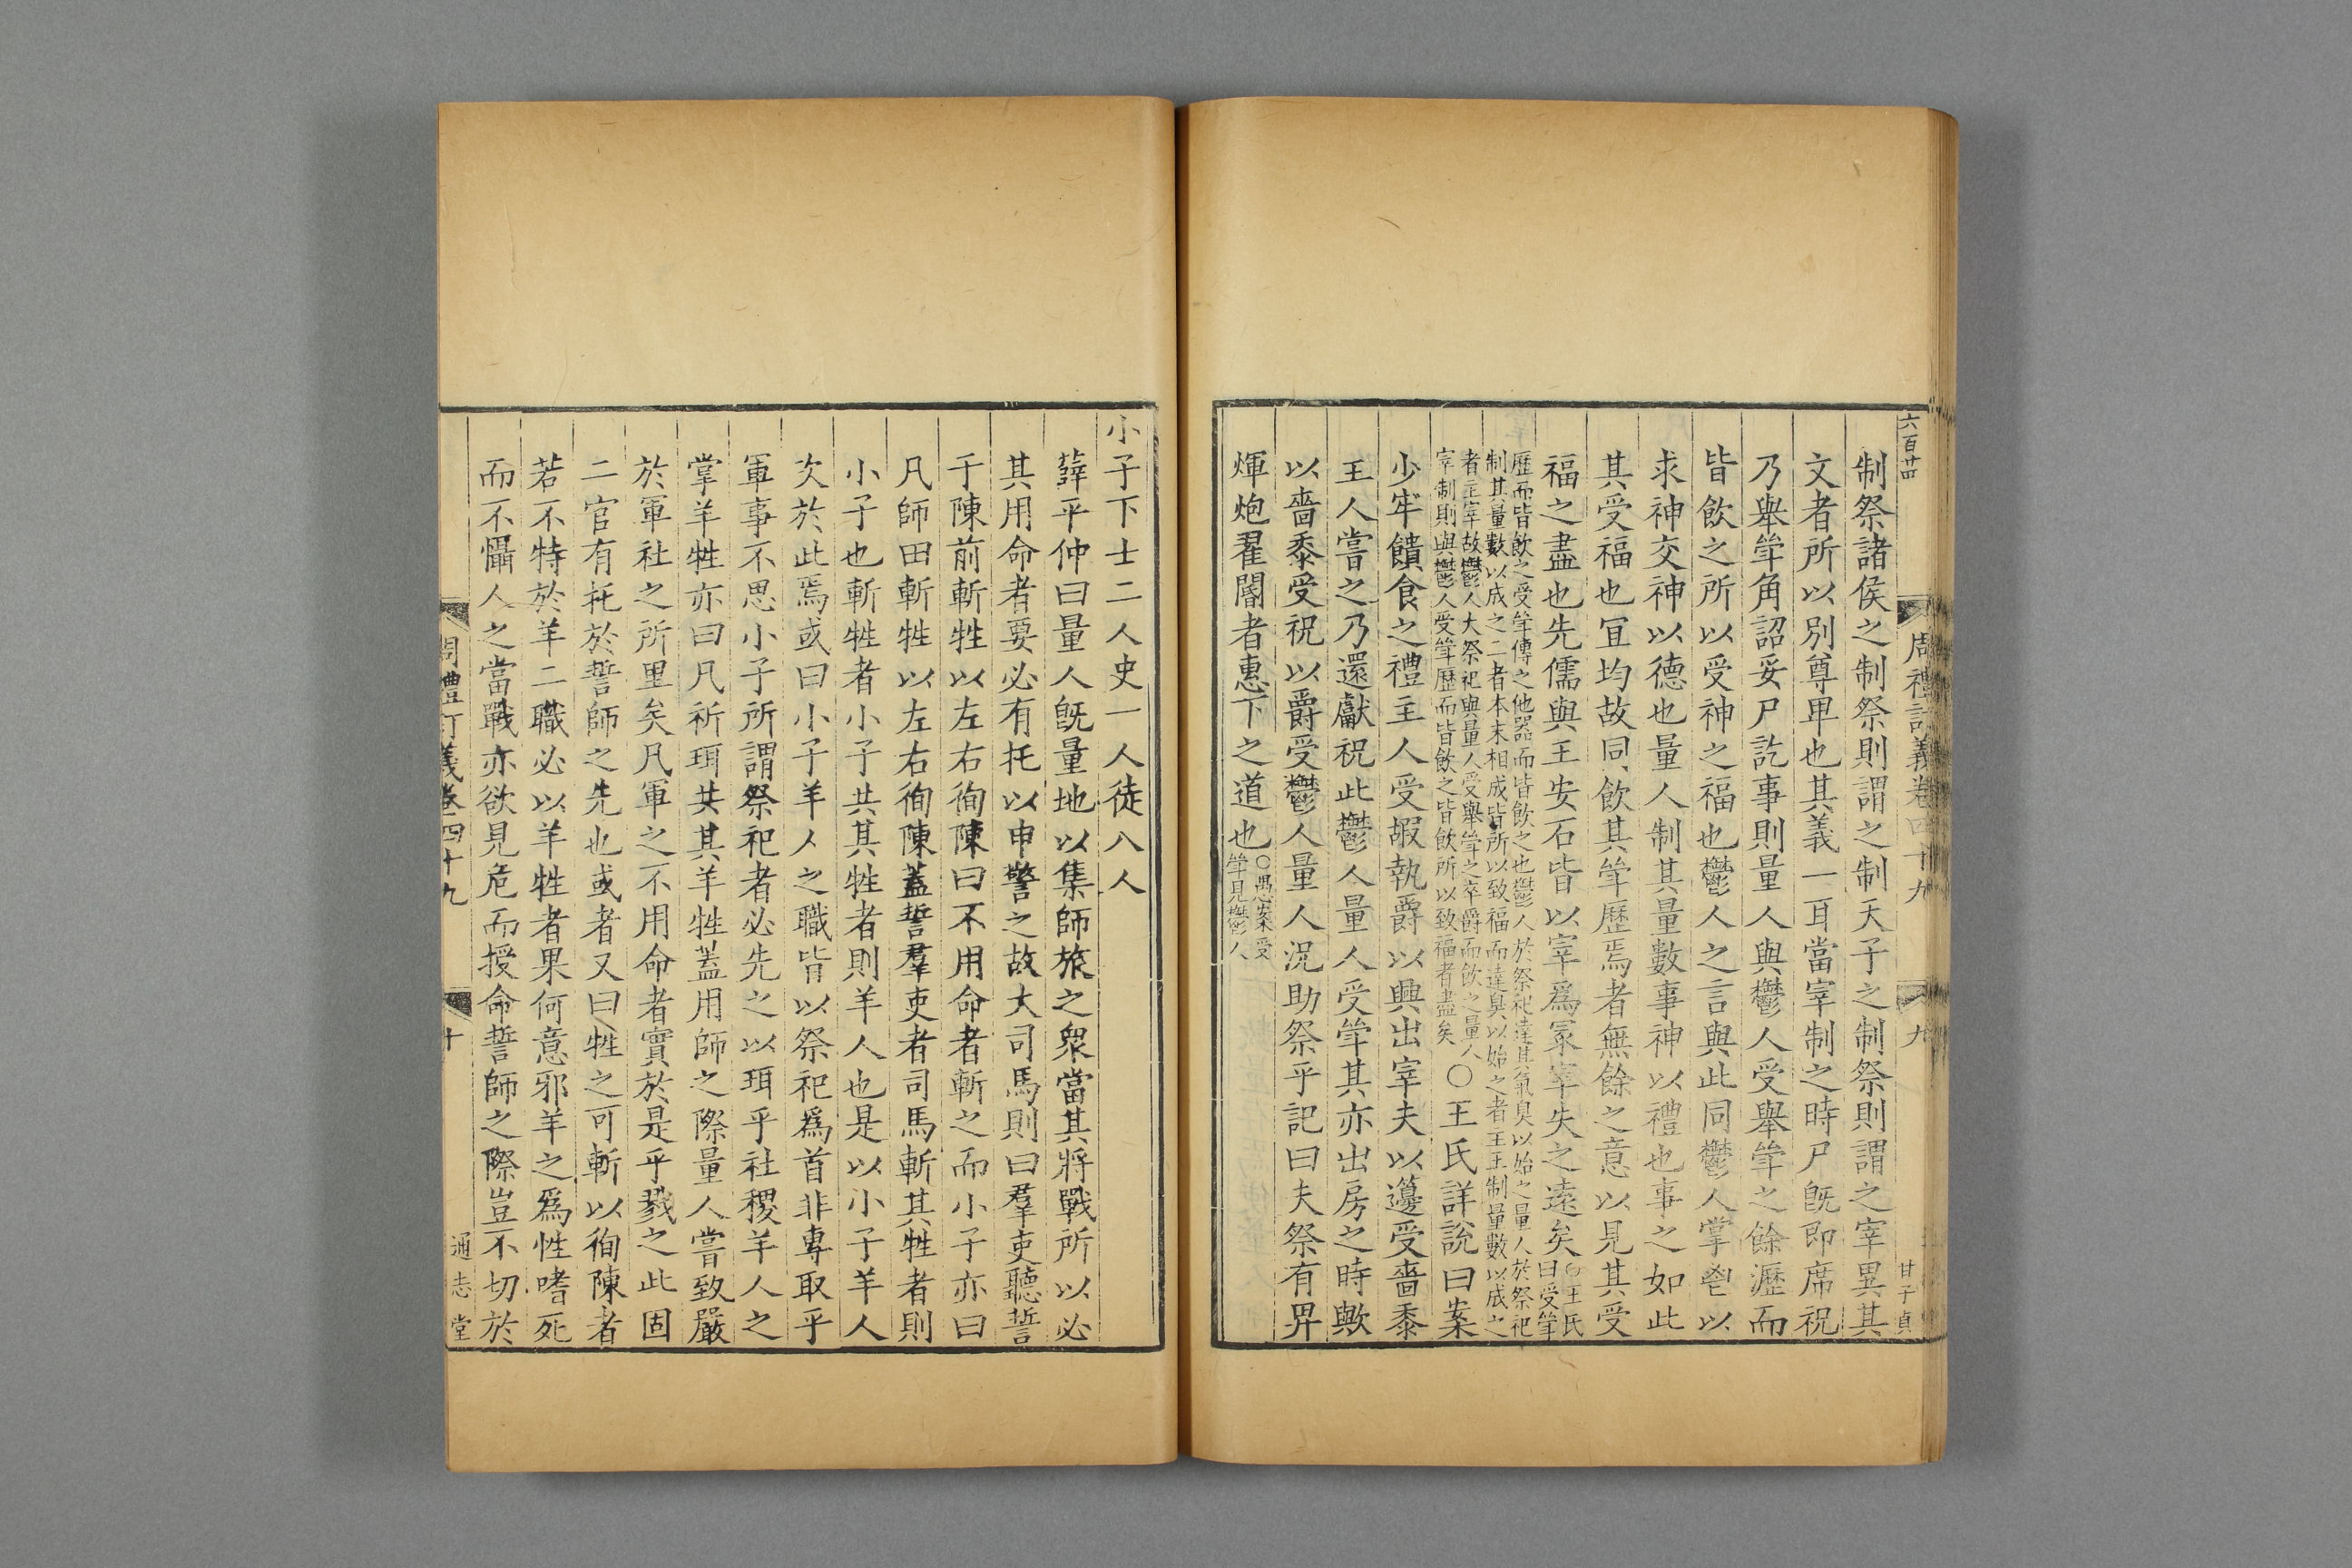 六百廿四
周禮訂義卷四十九
九
甘子貞
制祭諸侯之制祭則謂之制天子之制祭則謂之宰異其
文者所以別尊卑也其義一耳當宰制之時尸旣即席祝
乃舉斝角詔妥尸訖事則量人與鬱人受舉斝之餘瀝而
皆飲之所以受神之福也鬱人之言與此同鬱人掌鬯以
求神交神以德也量人制其量數事神以禮也事之如此
其受福也冝均故同飲其斝歷焉者無餘之意以見其受
福之盡也先儒與王安石皆以宰爲冢宰失之遠矣
○王氏
曰受斝
歷而皆飲之受斝傳之他器而皆飲之也鬱人於祭祀達其氣臭以始之量人於祭祀
制其量數以成之二者本末相成皆所以致福而達臭以始之者王王制量數以成之
者主宰故鬱人大祭祀與量人受舉斝之卒爵而飲之量人
宰制則與鬱人受斝歷而皆飲之皆飲所以致福者盡矣
○王氏詳說曰案
少牢饋食之禮主人受嘏執爵以興出宰夫以籩受嗇黍
主人嘗之乃還獻祝此鬱人量人受斝其亦出房之時歟
以嗇黍受祝以爵受鬱人量人況助祭乎記曰夫祭有畀
煇炮翟閽者惠下之道也
○愚案受
斝見鬱人
小子下士二人史一人徒八人
薛平仲曰量人旣量地以集師旅之衆當其將戰所以必
其用命者要必有托以申警之故大司馬則曰羣吏聽誓
于陳前斬牲以左右徇陳曰不用命者斬之而小子亦曰
凡師田斬牲以左右徇陳蓋誓羣吏者司馬斬其牲者則
小子也斬牲者小子共其牲者則羊人也是以小子羊人
次於此焉或曰小子羊人之職皆以祭祀爲首非專取乎
軍事不思小子所謂祭祀者必先之以珥乎社稷羊人之
掌羊牲亦曰凡祈珥共其羊牲蓋用師之際量人嘗致嚴
於軍社之所里矣凡軍之不用命者實於是乎戮之此固
二官有托於誓師之先也或者又曰牲之可斬以徇陳者
若不特於羊二職必以羊牲者果何意邪羊之爲性嗜死
而不懾人之當戰亦欲見危而授命誓師之際豈不切於
周禮訂義卷四十九
十
通志堂